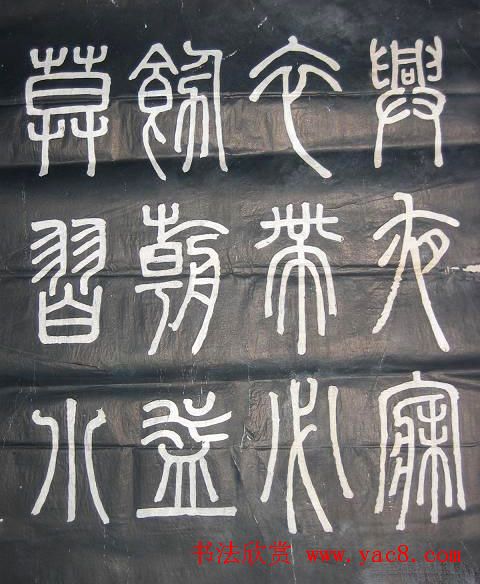 興夜寐
衣帶必
飭朝益
莫習小
书法欣赏 www.yac8.com